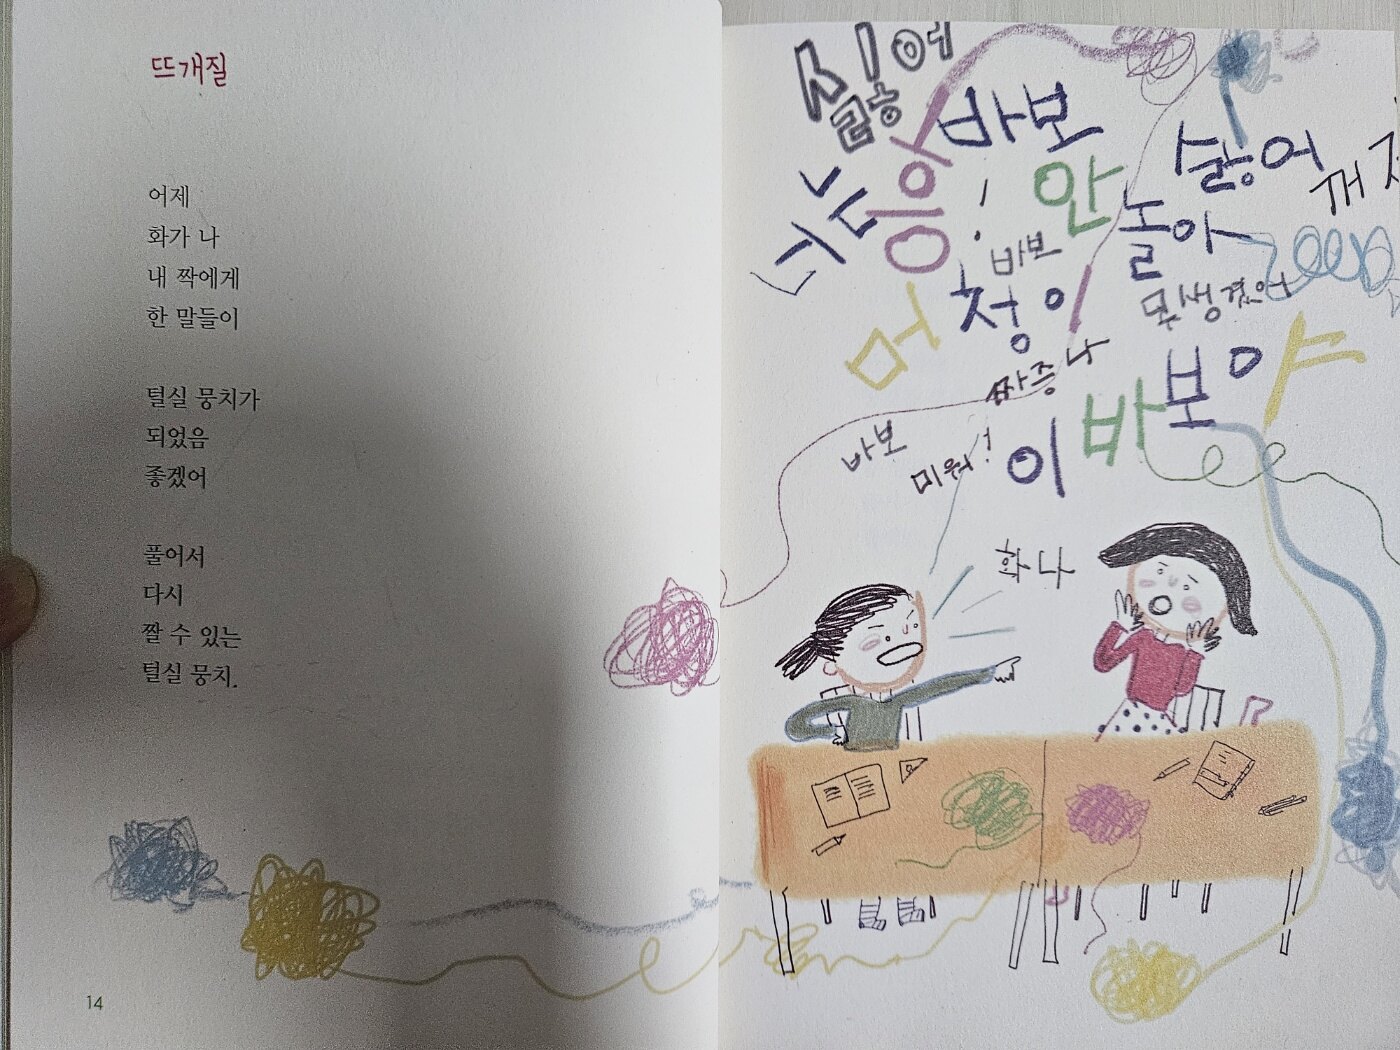 뜨개질
어제
화가 나
내 짝에게
한 말들이
털실 뭉치가
되었음
좋겠어
풀어서
다시
짤 수 있는
털실 뭉치.
14
싫어
바보
너는
안
싫어
꺼져
놀아
바보
!
멍청이
못생겼어
짜증나
이 바보야
바보
미워!
화나